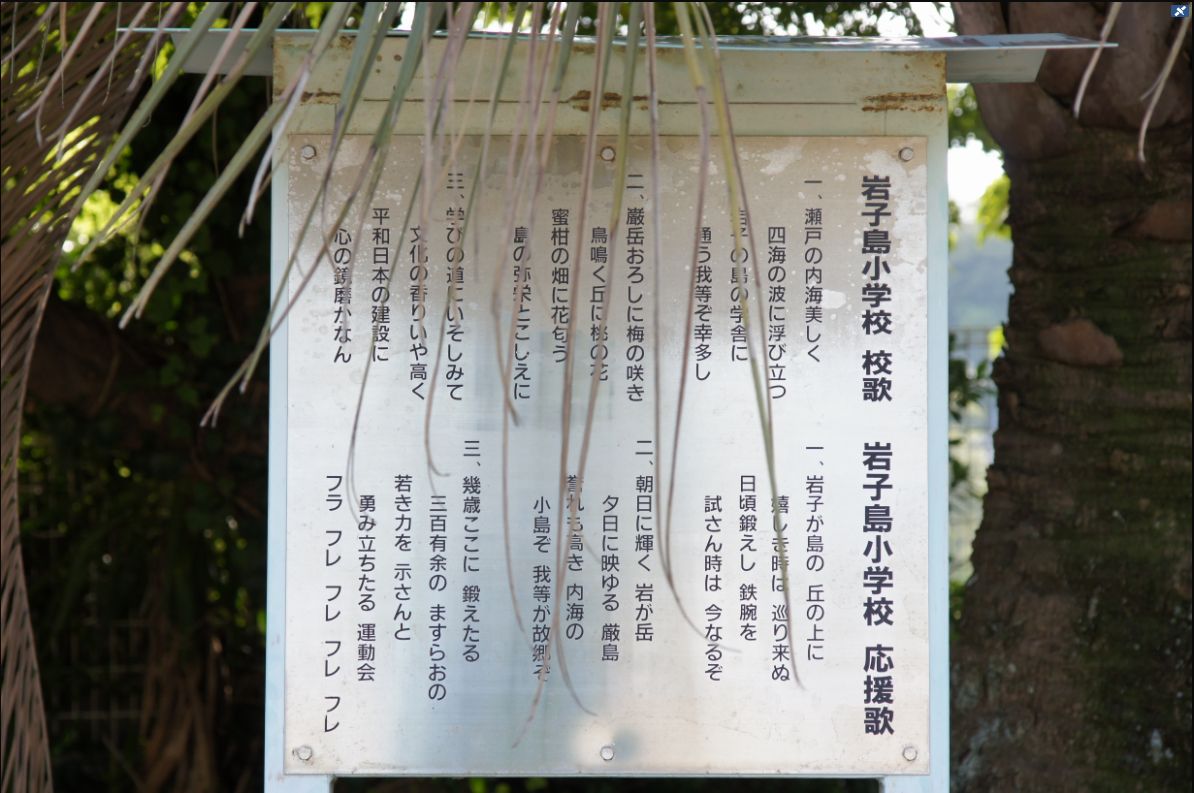 岩子島小学校 校歌
一、瀬戸の内海美しく
四海の波に浮び立つ
岩子の島の学舎に
通う我等ぞ幸多し
二、巌岳おろしに梅の咲き
鳥鳴く丘に桃の花
蜜柑の畑に花匂う
島の弥栄とこしえに
三、学びの道にいそしみて
文化の香りいや高く
平和日本の建設に
心の鏡磨かなん
岩子島小学校 応援歌
一、岩子が島の 丘の上に
嬉しき時は 巡り来ぬ
日頃鍛えし 鉄腕を
試さん時は 今なるぞ
二、朝日に輝く 岩が岳
夕日に映ゆる 厳島
誉れも高き 内海の
小島ぞ 我等が故郷ぞ
三、幾歳ここに 鍛えたる
三百有余の ますらおの
若き力を 示さんと
勇み立ちたる 運動会
フラ フレ フレ フレ フレ